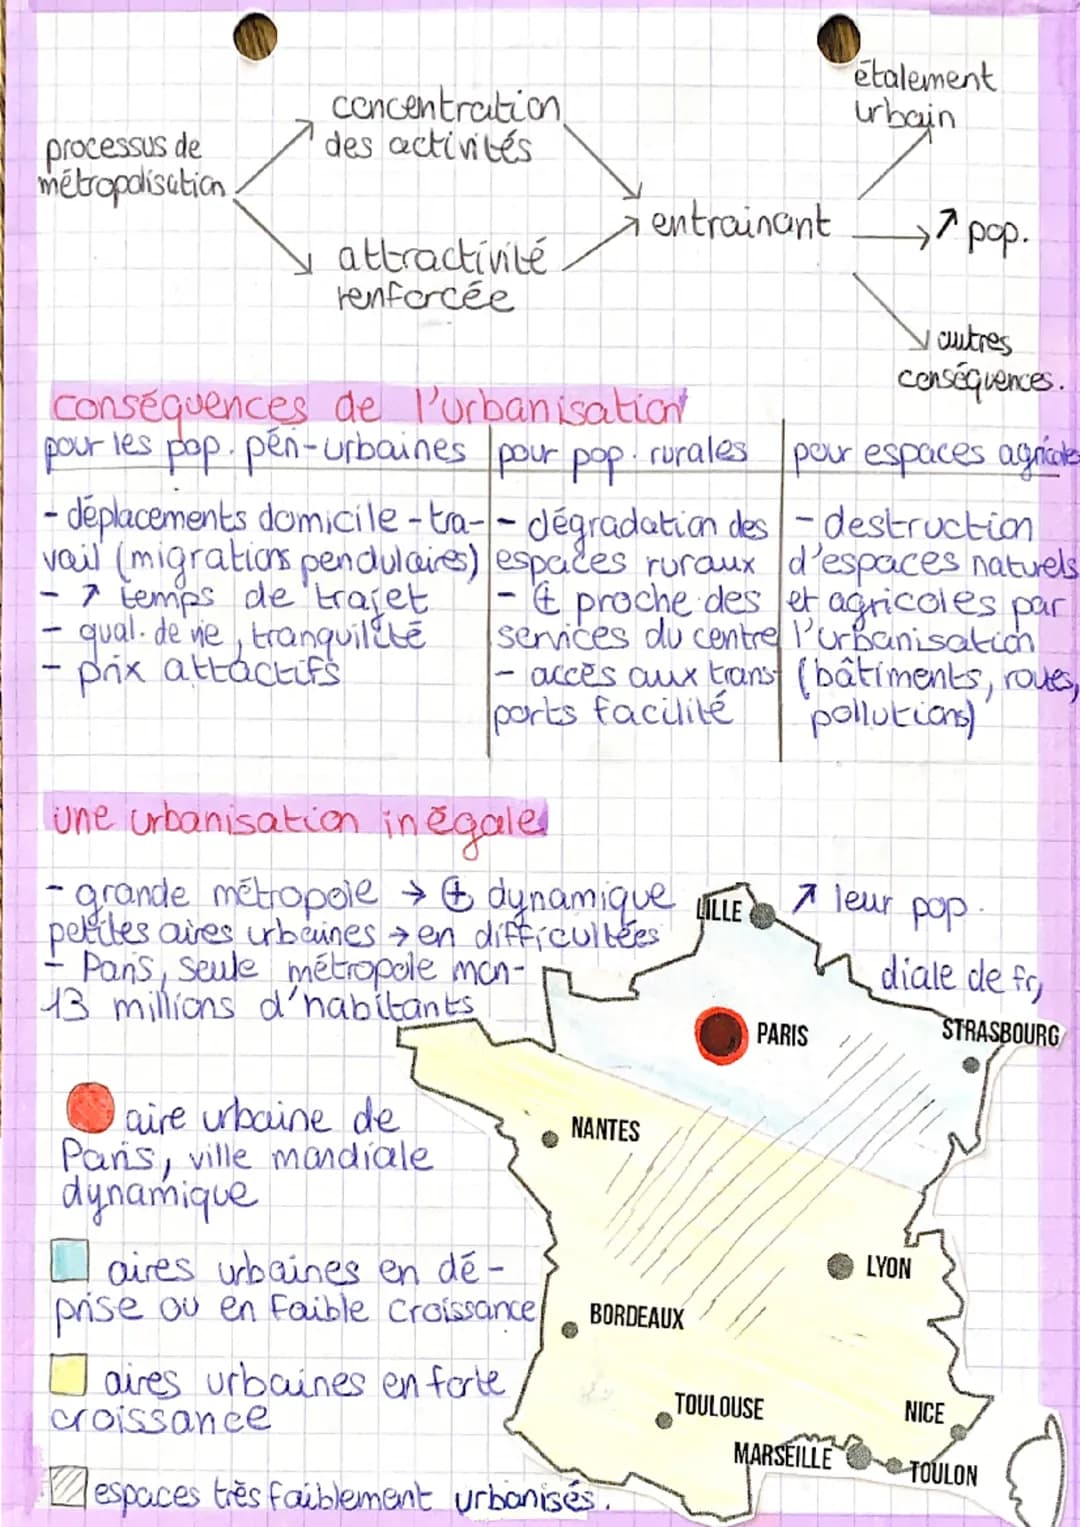 étalement
urbain
concentration
des activités
processus de
métropolisation
entrainant
↗ pop.
attractivité
renforcée
autres
conséquences.
conséquences de l'urbanisation
pour les pop. péri-urbaines
- déplacements domicile - tra-
vail (migrations pendulaires)
- ↗ temps de trajet
- qual. de vie, tranquilité
- prix attactifs
pour pop. rurales
- dégradation des
espaces ruraux
- ⊕ proche des
services du centre
- accès aux trans-
ports facilité
pour espaces agricoles
- destruction
d'espaces naturels
et agricoles par
l'urbanisation
(bâtiments, routes,
pollutions)
une urbanisation inégale
- grande métropole → ⊕ dynamique ↗ leur pop.
petites aires urbaines → en difficultées
- Paris, seule métropole mon- diale de fr,
13 millions d'habitants
LILLE
PARIS
STRASBOURG
NANTES
LYON
BORDEAUX
TOULOUSE
NICE
MARSEILLE
TOULON
aire urbaine de
Paris, ville mondiale
dynamique
aires urbaines en dé-
prise ou en faible croissance
aires urbaines en forte
croissance
espaces très faiblement urbanisés.